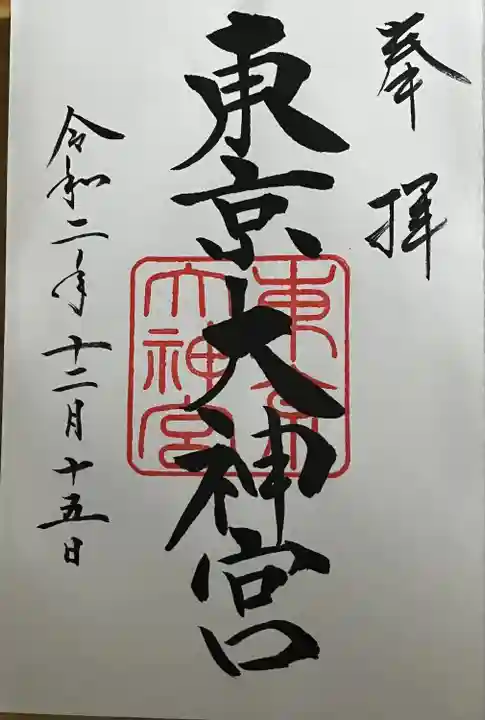 奉拝
東京大神宮
東京大神宮
令和二年十二月十五日